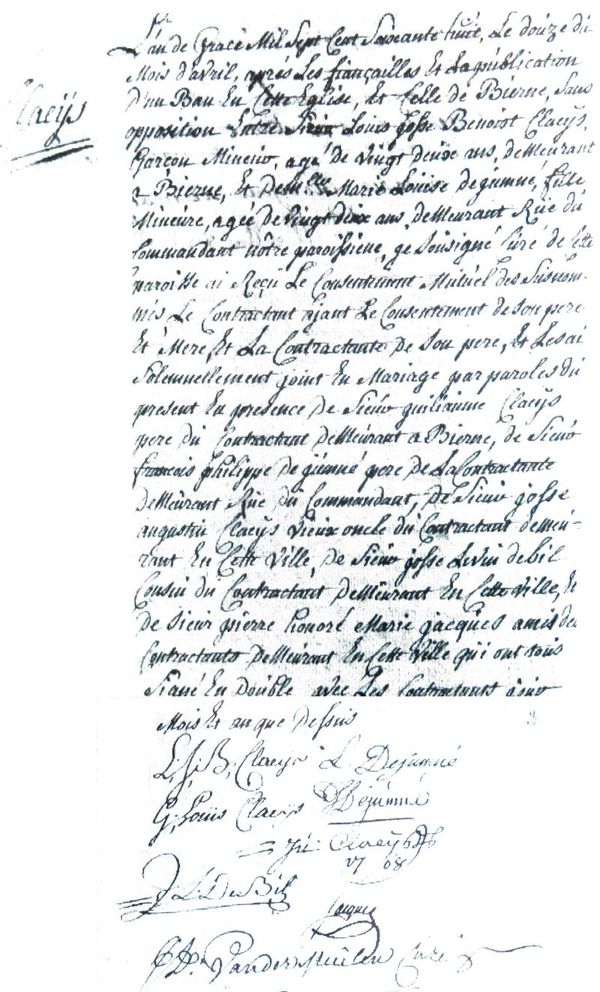 Claeÿs
L'an de Grace Mil Sept Cent Soixante huit, Le douze du
Mois d'avril, aprés Les fiançailles Et La publication
d'un Ban En Cette Eglise, Et Celle de Bierne, Sans
opposition Entre Sieur Louis Josse Benoist Claeÿs,
Garçon Mineur, agé de vingt deux ans, deMeurant
a Bierne, Et deMlle Marie Louise degumne, fille
Mineure, agée de vingt deux ans deMeurant Rüe du
Commandant nôtre paroissiene, je Sousigné Curé de Cette
paroisse ai Reçu Le Consentement Mutuel des Susnom-
més Le Contractant aÿant Le Consentement de Son pere
Et Mere, Et La Contractante de Son pere, Et Les ai
Solemnellement joint En Mariage par paroles du
present En presence de Sieur guiliaume Claeÿs
pere du Contractant deMeurant a Bierne, de Sieur
françois philippe degumné pere de La Contractante
deMeurant Rüe du Commandant, de Sieur josse
augustin Claeÿs vieux oncle du Contractant demeu-
rant En Cette Ville, de Sieur josse Levin debil
Cousin du Contractant deMeurant En Cette Ville, Et
de Sieur pierre honoré Marie jacques amis des
Contractants deMeurant En Cette Ville qui ont tous
Signé En Double avec Les Contractants à
Mois Et an que Dessus
L. J. B. Claeys L. Dejumné
G. Louis Claeys Déjumne
Claeÿs
17 68
J. L. De Bil
Jacques
Vandermeulen Curé